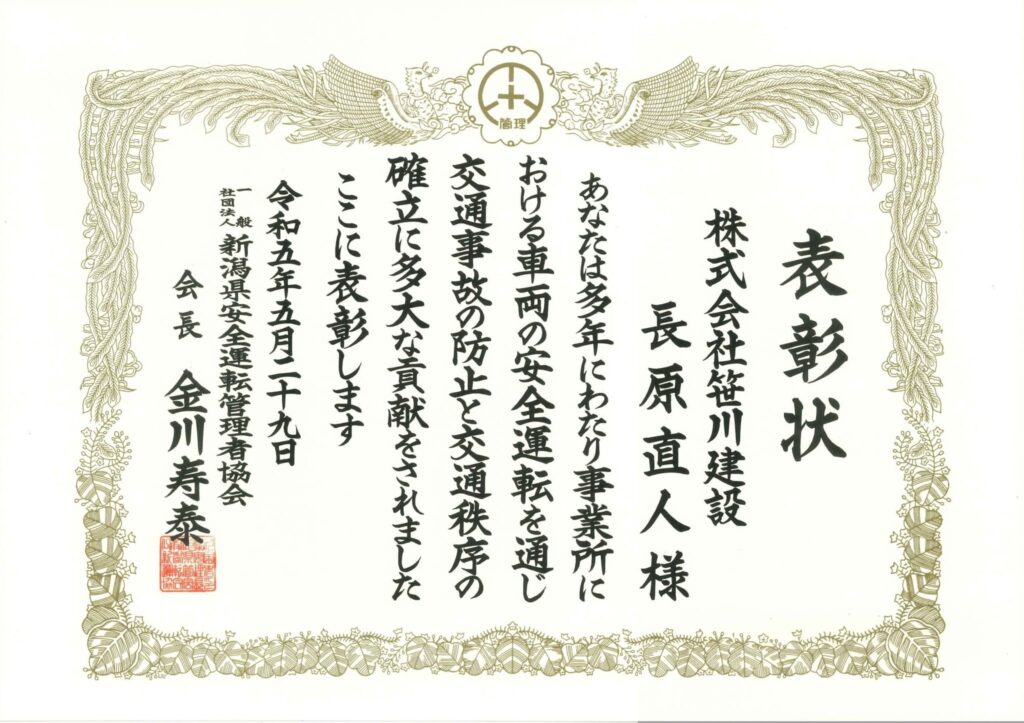 管理
表彰状
株式会社笹川建設
長原直人様
あなたは多年にわたり事業所に
おける車両の安全運転を通じ
交通事故の防止と交通秩序の
確立に多大な貢献をされました
ここに表彰します
令和五年五月二十九日
一般社団法人 新潟県安全運転管理者協会
会長 金川寿泰